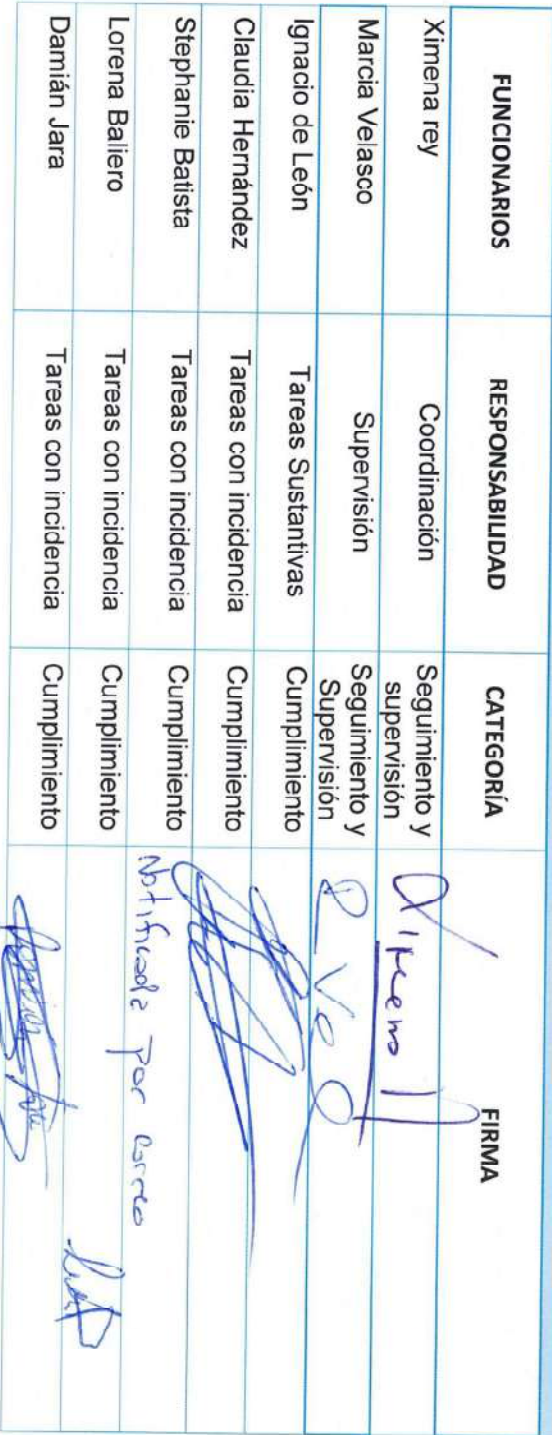 FUNCIONARIOS RESPONSABILIDAD CATEGORÍA FIRMA
Ximena rey Coordinación Seguimiento y
supervisión
Marcia Velasco Supervisión Seguimiento y
Supervisión
Ignacio de León Tareas Sustantivas Cumplimiento
Claudia Hernández Tareas con incidencia Cumplimiento
Stephanie Batista Tareas con incidencia Cumplimiento Notificada Por Correo
Lorena Baliero Tareas con incidencia Cumplimiento
Damián Jara Tareas con incidencia Cumplimiento